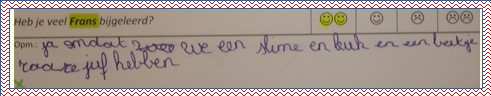 Heb je veel Frans bijgeleerd?
Opm.: ja omdat we een slime en leuk en een beetje
raare juf hebben